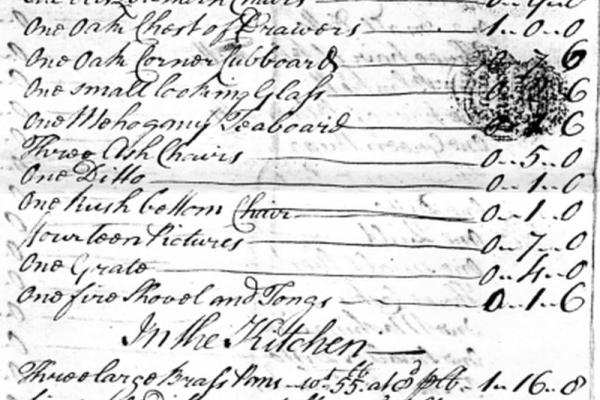 One Oak Chest of Drawers 1..0..0
One Oak Corner Cubboard 7 6
One small looking Glass 6
One Mehogony Teaboard 6
Three Ash Chairs 0..5..0
One Ditto 0..1..0
One Rush bottom Chair 0..1..0
fourteen Pictures 0..7..0
One Grate 0..4..0
One fire Shovel and Tongs 0..1..6
In the Kitchen
Three large Brass Pans wt. 55 lb at 8d p lb 1..16..8